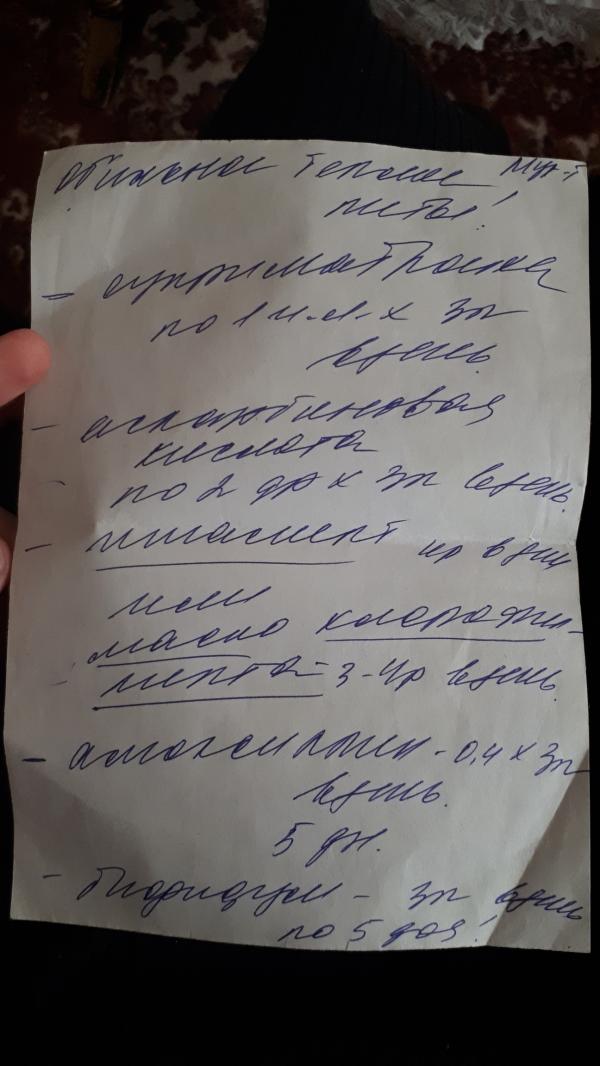 обильное теплое
питье!
- суприма
по 1 ч.л. х 3р
в день.
- аскорбиновая
кислота
- по 2 др х 3р в день.
- ингалипт 4р в день
или
масло хлорофил-
- липта - 3-4р в день.
- амоксициллин - 0,4 х 3р
в день.
5 дн.
- бифидум - 3р в день
по 5 доз!